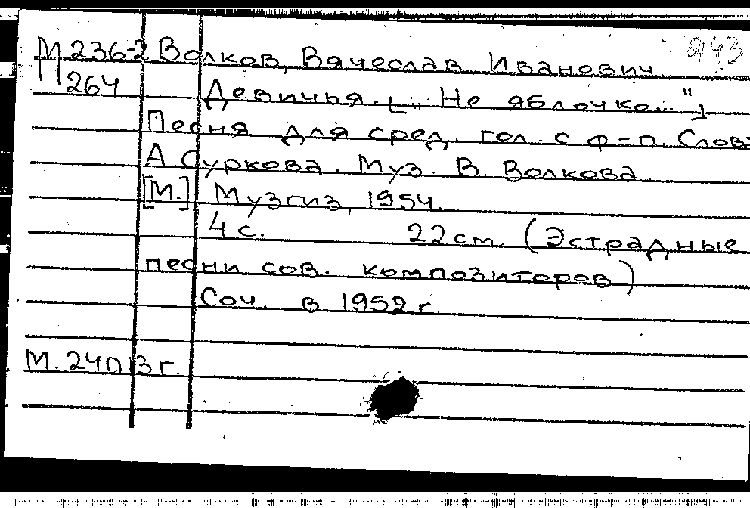 М 236-2 Волков, Вячеслав Иванович 943
264 Девичья. [„Не яблочко..."]
Песня для сред. гол. с ф=п. Слова
А. Суркова. Муз. В. Волкова.
[М.] Музгиз, 1954.
4 с. 22 см. (Эстрадные
песни сов. композиторов)
Соч. в 1952 г.